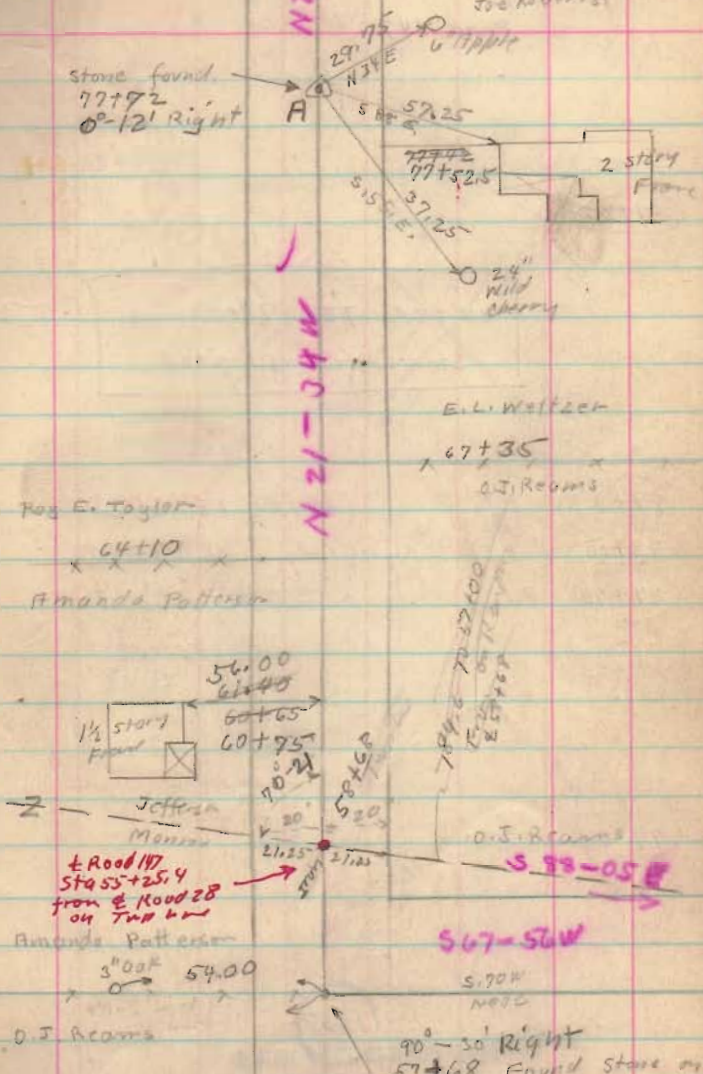 29.75
6" Apple
N34E
stone found
77+72
0°-12' Right
A
57.25
77+42
77+52.5
2 story
Frame
S.55.E.
37.25
24"
Wild
cherry
N 21-34 W
E.L. Weltzer
67+35
O.J. Reams
Roy E. Taylor
64+10
Amanda Patterson
56.00
61.40
60+65
60+75
1½ story
Frame
70°-21'
58+68
784.6 To 57+00
Jefferson
Monroe
20'
20
21.25
21.25
O.J. Reams
S.88-05 E
℄ Road 147
Sta 55+25.4
from ℄ Road 28
on Twp line
S67-56W
Amanda Patterson
3" Oak
54.00
S.70W
O.J. Reams
90°-30' Right
57+68 Found Stone